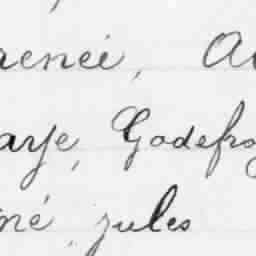 aenei, A
arje, Godefro
né, jules